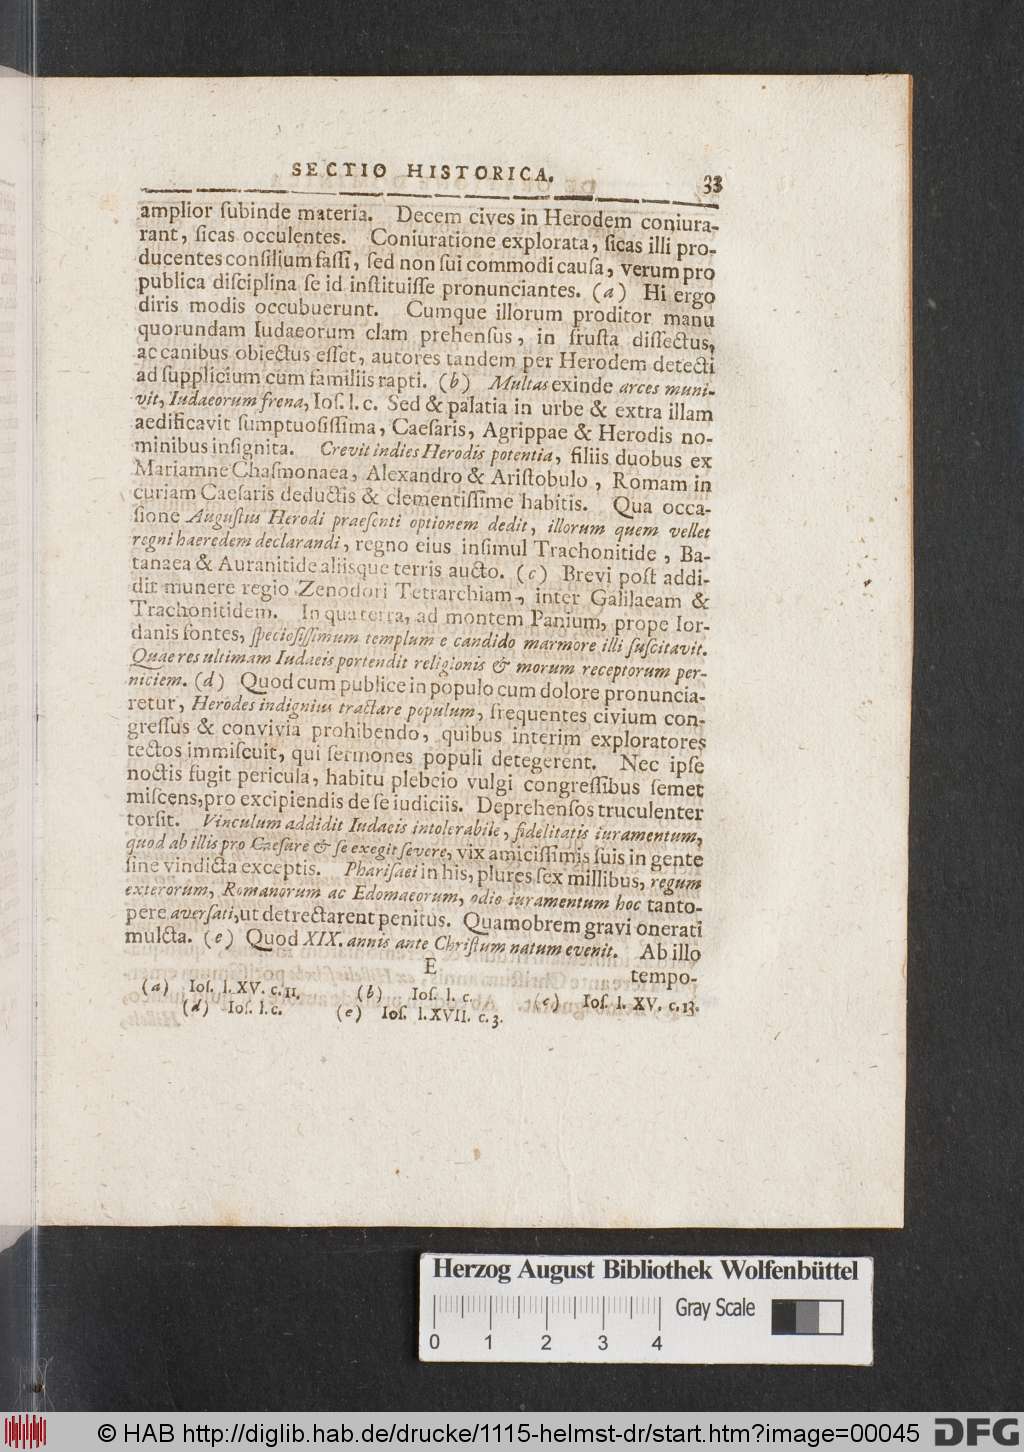 SECTIO HISTORICA. 33
amplior ſubinde materia. Decem cives in Herodem coniura-
rant, ſicas occulentes. Coniuratione explorata, ſicas illi pro-
ducentes conſilium faſſi, ſed non ſui commodi cauſa, verum pro
publica diſciplina ſe id inſtituiſſe pronunciantes. (a) Hi ergo
diris modis occubuerunt. Cumque illorum proditor manu
quorundam Iudaeorum clam prehenſus, in fruſta diſſectus,
ac canibus obiectus eſſet, autores tandem per Herodem detecti
ad ſupplicium cum familiis rapti. (b) Multas exinde arces muni-
vit, Iudaeorum frena, Ioſ. l. c. Sed & palatia in urbe & extra illam
aedificavit ſumptuoſiſſima, Caeſaris, Agrippae & Herodis no-
minibus inſignita. Crevit indies Herodis potentia, filiis duobus ex
Mariamne Chaſmonaea, Alexandro & Ariſtobulo, Romam in
curiam Caeſaris deductis & clementiſſime habitis. Qua occa-
ſione Auguſtus Herodi praeſenti optionem dedit, illorum quem vellet
regni haeredem declarandi, regno eius inſimul Trachonitide, Ba-
tanaea & Auranitide aliisque terris aucto. (c) Brevi poſt addi-
dit munere regio Zenodori Tetrarchiam, inter Galilaeam &
Trachonitidem. In qua terra, ad montem Panium, prope Ior-
danis fontes, ſpecioſiſſimum templum e candido marmore illi ſuſcitavit.
Quae res ultimam Iudaeis portendit religionis & morum receptorum per-
niciem. (d) Quod cum publice in populo cum dolore pronuncia-
retur, Herodes indignius tractare populum, frequentes civium con-
greſſus & convivia prohibendo, quibus interim exploratores
tectos immiſcuit, qui ſermones populi detegerent. Nec ipſe
noctis fugit pericula, habitu plebeio vulgi congreſſibus ſemet
miſcens, pro excipiendis de ſe iudiciis. Deprehenſos truculenter
torſit. Vinculum addidit Iudaeis intolerabile, fidelitatis iuramentum,
quod ab illis pro Caeſare & ſe exegit ſevere, vix amiciſſimis ſuis in gente
ſine vindicta exceptis. Phariſaei in his, plures ſex millibus, regum
exterorum, Romanorum ac Edomaeorum, odio iuramentum hoc tanto-
pere averſati, ut detrectarent penitus. Quamobrem gravi onerati
mulcta. (e) Quod XIX. annis ante Chriſtum natum evenit. Ab illo
E tempo-
(a) Ioſ. l. XV. c. 11. (b) Ioſ. l. c. (c) Ioſ. l. XV. c. 13.
(d) Ioſ. l. c. (e) Ioſ. l. XVII. c. 3.
Herzog August Bibliothek Wolfenbüttel
Gray Scale
0 1 2 3 4
© HAB http://diglib.hab.de/drucke/1115-helmst-dr/start.htm?image=00045
DFG